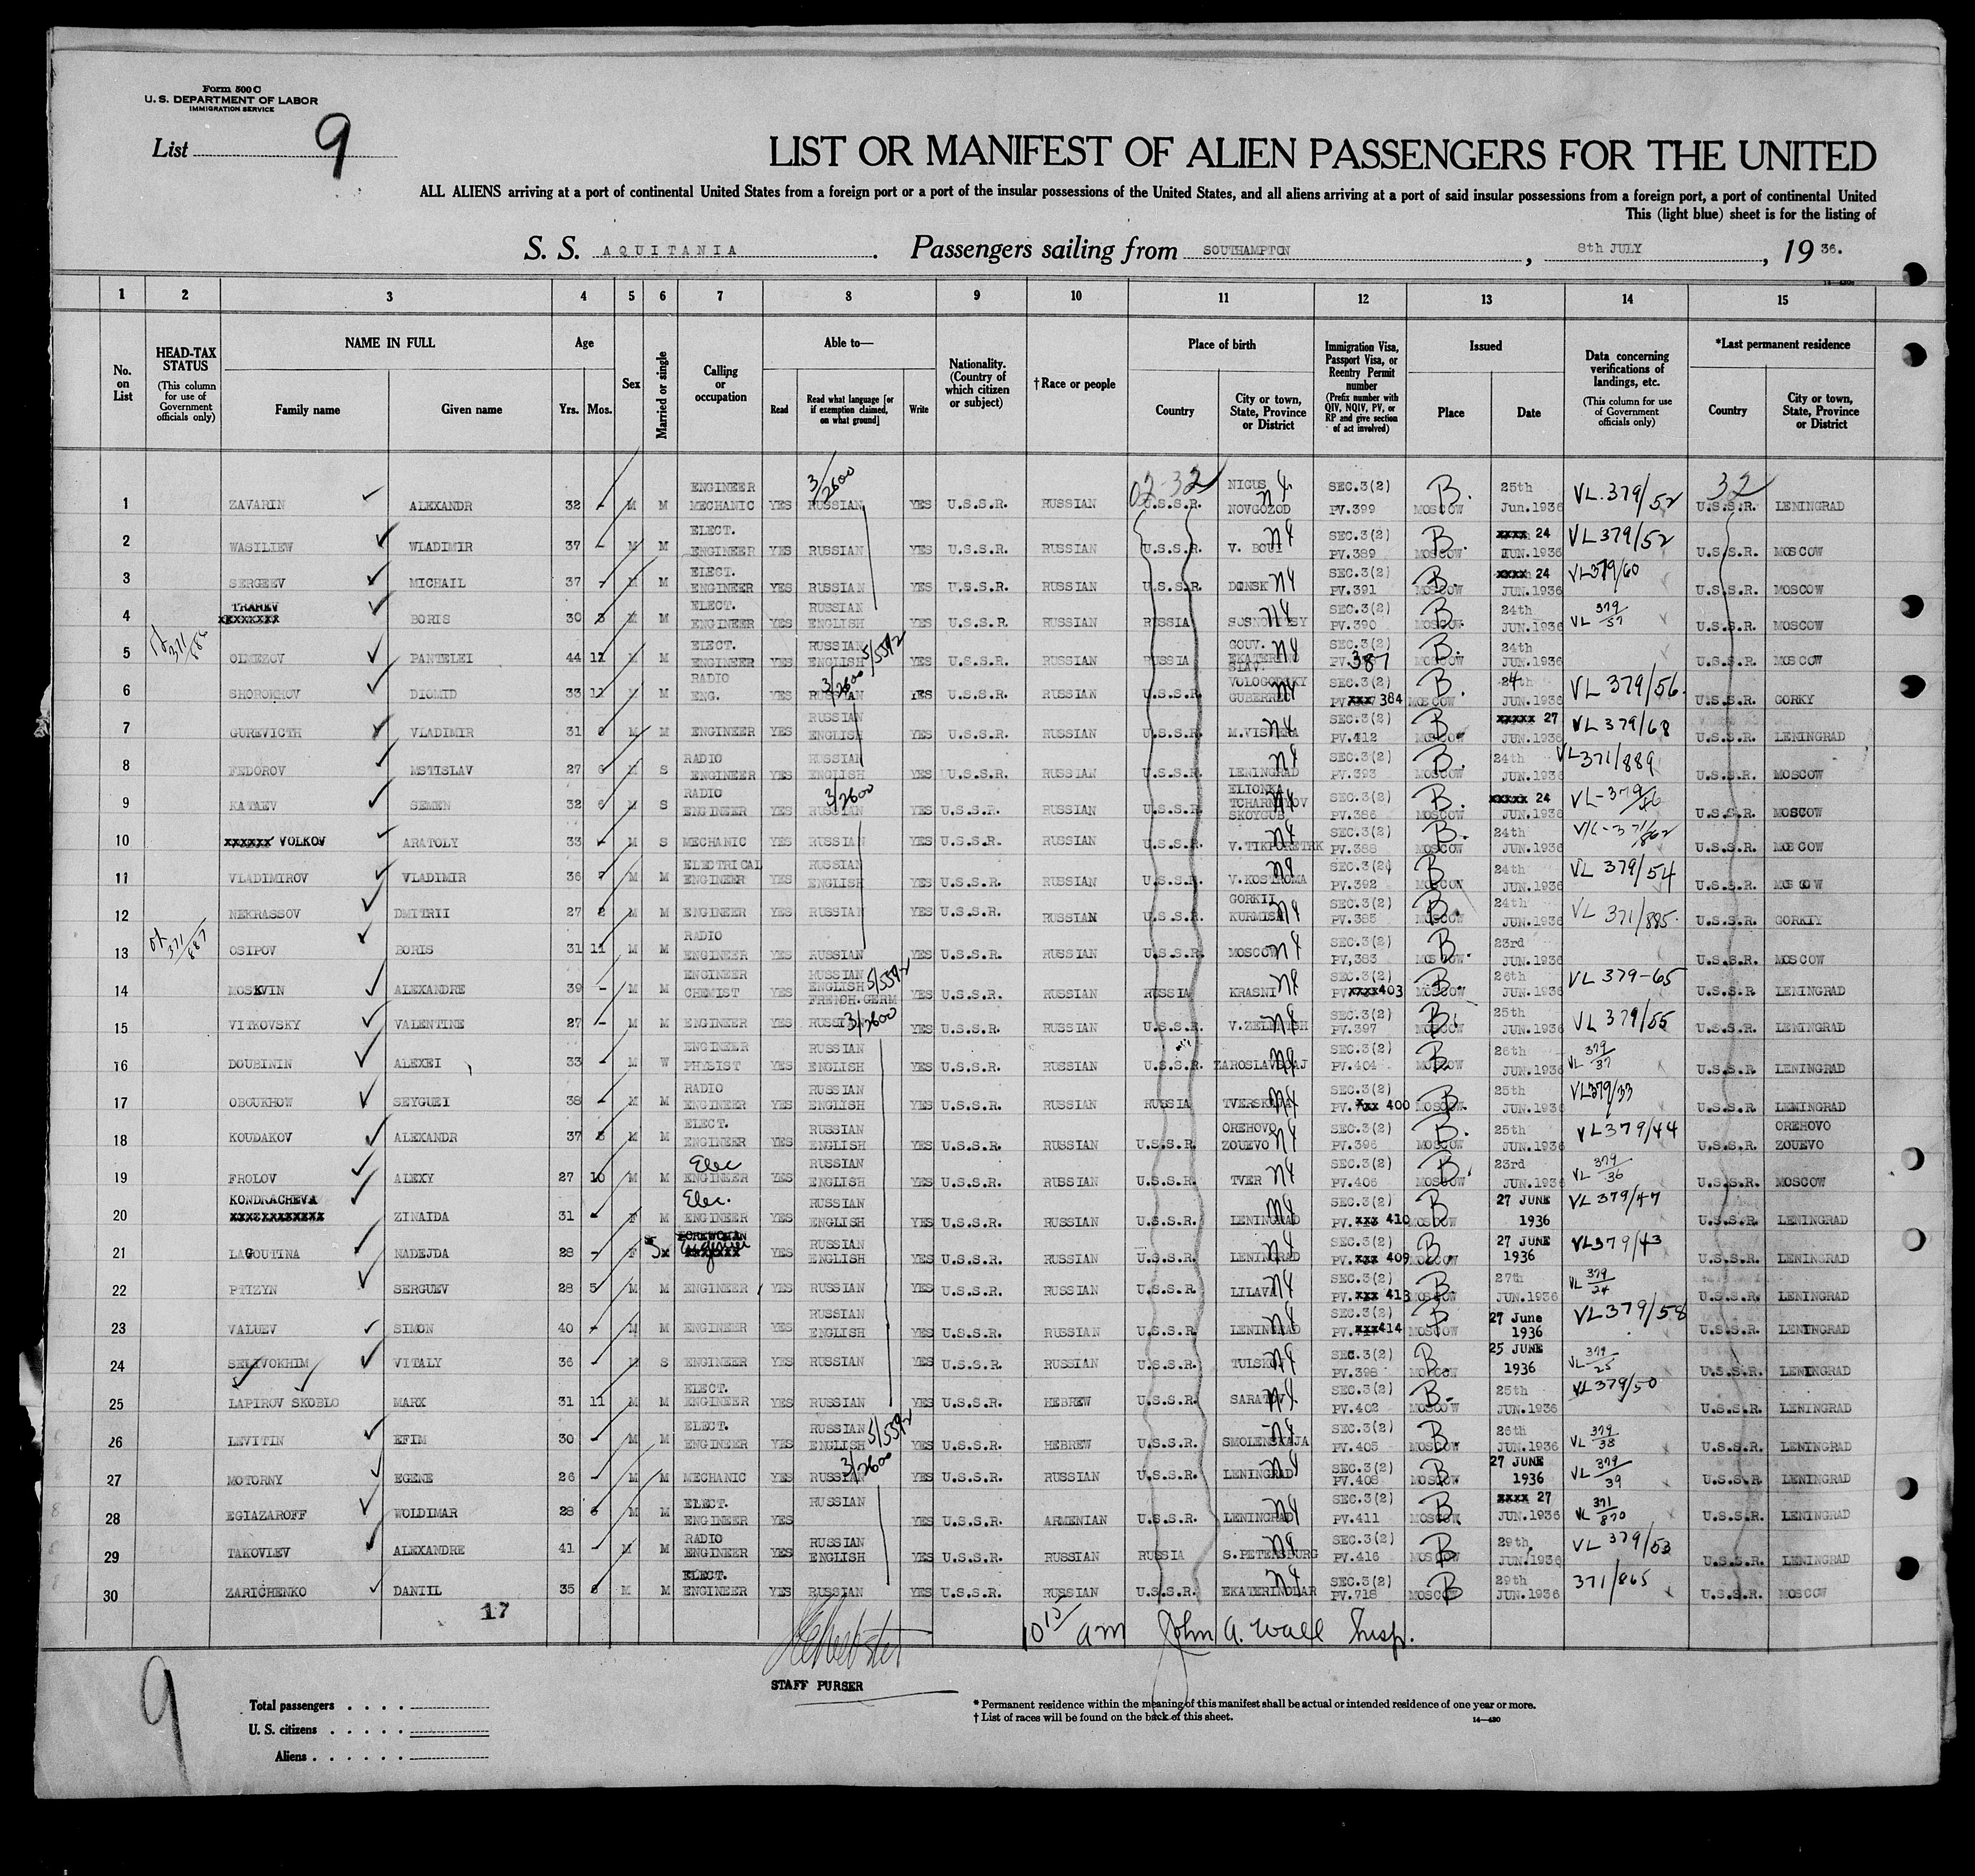 Form 500 C
U. S. DEPARTMENT OF LABOR
IMMIGRATION SERVICE
List 9
LIST OR MANIFEST OF ALIEN PASSENGERS FOR THE UNITED
ALL ALIENS arriving at a port of continental United States from a foreign port or a port of the insular possessions of the United States, and all aliens arriving at a port of said insular possessions from a foreign port, a port of continental United
This (light blue) sheet is for the listing of
S. S. AQUITANIA. Passengers sailing from SOUTHAMPTON, 8th JULY, 19 36.
1 2 3 4 5 6 7 8 9 10 11 12 13 14 15
No. on List
HEAD-TAX STATUS (This column for use of Government officials only)
NAME IN FULL Family name Given name
Age Yrs. Mos.
Sex
Married or single
Calling or occupation
Able to— Read Read what language [or if exemption claimed, on what ground] Write
Nationality. (Country of which citizen or subject)
† Race or people
Place of birth Country City or town, State, Province or District
Immigration Visa, Passport Visa, or Reentry Permit number (Prefix number with QIV, NQIV, PV, or RP and give section of act involved)
Issued Place Date
Data concerning verifications of landings, etc. (This column for use of Government officials only)
*Last permanent residence Country City or town, State, Province or District
1 ZAVARIN ALEXANDR 32 - M M ENGINEER MECHANIC YES RUSSIAN 3/2600 YES U.S.S.R. RUSSIAN 02-32 U.S.S.R. NIGUS NOVGOZOD SEC.3(2) PV.399 B. MOSCOW 25th Jun.1936 VL.379/52 32 U.S.S.R. LENINGRAD
2 WASILIEW WLADIMIR 37 - M M ELECT. ENGINEER YES RUSSIAN YES U.S.S.R. RUSSIAN U.S.S.R. V. SEC.3(2) PV.389 B. MOSCOW 24 JUN.1936 VL379/52 U.S.S.R. MOSCOW
3 SERGEEV MICHAIL 37 - M M ELECT. ENGINEER YES RUSSIAN YES U.S.S.R. RUSSIAN U.S.S.R. DONSK SEC.3(2) PV.391 B. MOSCOW 24 JUN.1936 VL379/60 U.S.S.R. MOSCOW
4 BORIS 30 M M ELECT. ENGINEER YES RUSSIAN ENGLISH YES U.S.S.R RUSSIAN RUSSIA SEC.3(2) PV.390 B MOSCOW 24th JUN.1936 VL 379/57 U.S.S.R. MOSCOW
5 OIMEZOV PANTELEI 44 M ELECT. ENGINEER YES RUSSIAN ENGLISH 5/5592 YES U.S.S.R. RUSSIAN RUSSIA GOUV. EKATERINO SLAV. SEC.3(2) PV.387 B. MOSCOW 24th JUN.1936 U.S.S.R. MOSCOW
6 SHOROKHOV DIOMID 33 11 M M RADIO ENG. YES RUSSIAN 3/2600 YES U.S.S.R. RUSSIAN U.S.S.R. VOLOGODSKY SEC.3(2) PV 384 B. MOSCOW 24th JUN.1936 VL 379/56. U.S.S.R. GORKY
7 GUREVICTH VLADIMIR 31 6 M M ENGINEER YES RUSSIAN ENGLISH YES U.S.S.R. RUSSIAN U.S.S.R. SEC.3(2) PV.412 B MOSCOW 27 JUN.1936 VL 379/68 U.S.S.R. LENINGRAD
8 FEDOROV MSTISLAV 27 6 M S RADIO ENGINEER YES RUSSIAN ENGLISH YES U.S.S.R. RUSSIAN U.S.S.R. LENINGRAD SEC.3(2) PV.393 B. MOSCOW 24th JUN.1936 VL371/889 U.S.S.R. MOSCOW
9 KATAEV SEMEN 32 6 M S RADIO ENGINEER YES RUSSIAN 3/2600 YES U.S.S.R. RUSSIAN U.S.S.R ELIONKA SEC.3(2) PV.386 B. MOSCOW 24 JUN.1936 VL-379/46 U.S.S.R. MOSCOW
10 VOLKOV ARATOLY 33 - M S MECHANIC YES RUSSIAN YES U.S.S.R. RUSSIAN U.S.S.R. SEC.3(2) PV.388 B. MOSCOW 24th JUN.1936 U.S.S.R. MOSCOW
11 VLADIMIROV VLADIMIR 36 7 M M ELECTRICAL ENGINEER YES RUSSIAN ENGLISH YES U.S.S.R. RUSSIAN U.S.S.R. V.KOSTROMA SEC.3(2) PV.392 B MOSCOW 24th JUN.1936 VL 379/54 U.S.S.R. MOSCOW
12 NEKRASSOV DMITRII 27 2 M M ENGINEER YES RUSSIAN YES U.S.S.R. RUSSIAN U.S.S.R. GORKII SEC.3(2) PV.385 B. MOSCOW 24th JUN.1936 VL 371/885. U.S.S.R. GORKIY
13 OSIPOV BORIS 31 11 M M RADIO ENGINEER YES RUSSIAN YES U.S.S.R. RUSSIAN U.S.S.R. MOSCOW SEC.3(2) PV,383 B. MOSCOW. 23rd JUN.1936 U.S.S.R. MOSCOW
14 MOSKVIN ALEXANDRE 39 - M M ENGINEER CHEMIST YES RUSSIAN ENGLISH FRENCH.GERM 5/5592 YES U.S.S.R. RUSSIAN RUSSIA KRASNI SEC.3(2) PV 403 B. MOSCOW 26th JUN.1936 VL 379-65 U.S.S.R LENINGRAD
15 VITKOVSKY VALENTINE 27 - M M ENGINEER YES RUSSIAN 3/2600 YES U.S.S.R. RUSSIAN U.S.S.R. SEC.3(2) PV.397 B. MOSCOW 25th JUN.1936 VL 379/55 U.S.S.R. LENINGRAD
16 DOUBININ ALEXEI 33 - M W ENGINEER PHYSIST YES RUSSIAN ENGLISH YES U.S.S.R. RUSSIAN U.S.S.R. SEC.3(2) PV.404 B. MOSCOW 26th JUN.1936 VL 379/37 U.S.S.R LENINGRAD
17 OBOUKHOW SEYGUEI 38 - M M RADIO ENGINEER YES RUSSIAN ENGLISH YES U.S.S.R. RUSSIAN RUSSIA TVERSKAJA SEC.3(2) PV. 400 B MOSCOW. 25th JUN.1936 VL379/33 U.S.S.R LENINGRAD
18 KOUDAKOV ALEXANDR 37 M M ELECT. ENGINEER YES RUSSIAN ENGLISH YES U.S.S.R. RUSSIAN U.S.S.R. OREHOVO ZOUEVO SEC.3(2) PV.396 B. MOSCOW 25th JUN.1936 VL379/44 U.S.S.R. OREHOVO ZOUEVO
19 FROLOV ALEXY 27 10 M M Elec ENGINEER YES RUSSIAN ENGLISH YES U.S.S.R. RUSSIAN U.S.S.R. TVER SEC.3(2) PV.406 B. MOSCOW 23rd JUN.1936 VL 379/36 U.S.S.R. MOSCOW
20 KONDRACHEVA ZINAIDA 31 - F M Elec. ENGINEER YES RUSSIAN ENGLISH YES U.S.S.R. RUSSIAN U.S.S.R. LENINGRAD SEC.3(2) PV. 410 B MOSCOW 27 JUNE 1936 VL 379/47 U.S.S.R. LENINGRAD
21 LAGOUTINA NADEJDA 28 - F S FOREWOMAN Engineer YES RUSSIAN ENGLISH YES U.S.S.R. RUSSIAN U.S.S.R. LENINGRAD SEC.3(2) PV. 409 B. MOSCOW 27 JUNE 1936 VL379/43 U.S.S.R. LENINGRAD
22 PTIZYN SERGUEV 28 5 M M ENGINEER YES RUSSIAN YES U.S.S.R. RUSSIAN U.S.S.R. LILAVA SEC.3(2) PV. 413 B MOSCOW 27th JUN.1936 VL 379/24 U.S.S.R. LENINGRAD
23 VALUEV SIMON 40 - M M ENGINEER YES RUSSIAN ENGLISH YES U.S.S.R. RUSSIAN U.S.S.R. LENINGRAD SEC.3(2) PV. 414 B MOSCOW 27 June 1936 VL379/58 U.S.S.R. LENINGRAD
24 SELIVOKHIM VITALY 36 - M S ENGINEER YES RUSSIAN YES U.S.S.R. RUSSIAN U.S.S.R. SEC.3(2) PV.398 B. MOSCOW 25 JUNE 1936 VL 379/25 U.S.S.R. LENINGRAD
25 LAPIROV SKOBLO MARX 31 11 M M ELECT. ENGINEER YES RUSSIAN YES U.S.S.R. HEBREW U.S.S.R. SARATOV SEC.3(2) PV.402 B. MOSCOW 25th JUN.1936 VL379/50 U.S.S.R. LENINGRAD
26 LEVITIN EFIM 30 - M M ELECT. ENGINEER YES RUSSIAN ENGLISH 5/5592 YES U.S.S.R. HEBREW U.S.S.R. SMOLENSKAJA SEC.3(2) PV.405 B MOSCOW 26th JUN.1936 VL 379/38 U.S.S.R. LENINGRAD
27 MOTORNY EGENE 26 - M M MECHANIC YES RUSSIAN 3/2600 YES U.S.S.R. RUSSIAN U.S.S.R. LENINGRAD SEC.3(2) PV.408 B MOSCOW 27 JUNE 1936 VL 379/39 U.S.S.R LENINGRAD
28 EGIAZAROFF WOLDIMAR 28 6 M M ELECT. ENGINEER YES RUSSIAN YES U.S.S.R. ARMENIAN U.S.S.R. LENINGRAD SEC.3(2) PV.411 B MOSCOW 27 JUN.1936 VL 371/870 U.S.S.R. LENINGRAD
29 TAKOVLEV ALEXANDRE 41 - M M RADIO ENGINEER YES RUSSIAN ENGLISH YES U.S.S.R. RUSSIAN RUSSIA S.PETERSBURG SEC.3(2) PV.416 B MOSCOW 29th. JUN.1936 VL 379/53 U.S.S.R. LENINGRAD
30 ZARICHENKO DANIIL 35 M M ELECT. ENGINEER YES RUSSIAN YES U.S.S.R. RUSSIAN U.S.S.R. EKATERINODAR SEC.3(2) PV.718 B MOSCOW 29th JUN.1936 371/865 U.S.S.R. MOSCOW
17
10 15 am John A. Wall Insp.
STAFF PURSER
9
Total passengers
U. S. citizens
Aliens
* Permanent residence within the meaning of this manifest shall be actual or intended residence of one year or more.
† List of races will be found on the back of this sheet.
14—430